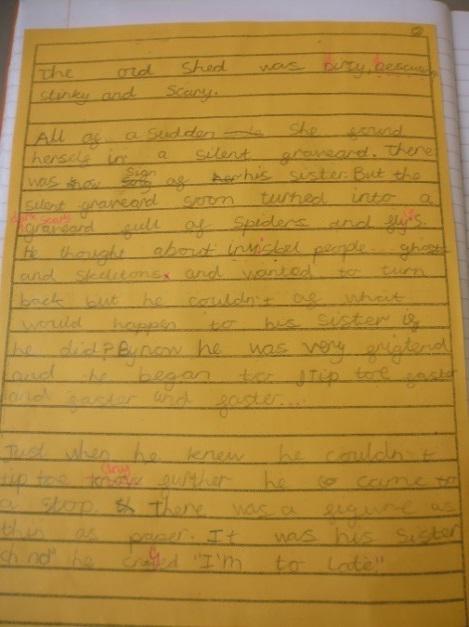 The old shed was Dirty,
stinky and Scary.
All of a Sudden she found
herself in a silent graveard. There
was now sign of his sister. But the
silent graveard soon turned into a
dark scary
graveard full of Spiders and flys.
He thought about invisbel people ghosts
and Skelitons and wanted to turn
back but he couldn't as what
would happen to his sister if
he did? By now he was very frigtend
and he began to tip toe faster
and faster and faster...
Just when he knew he couldn't
tip toe any further he came to
a stop. There was a figure as
thin as paper. It was his Sister
oh no" he cryed "I'm to late!"